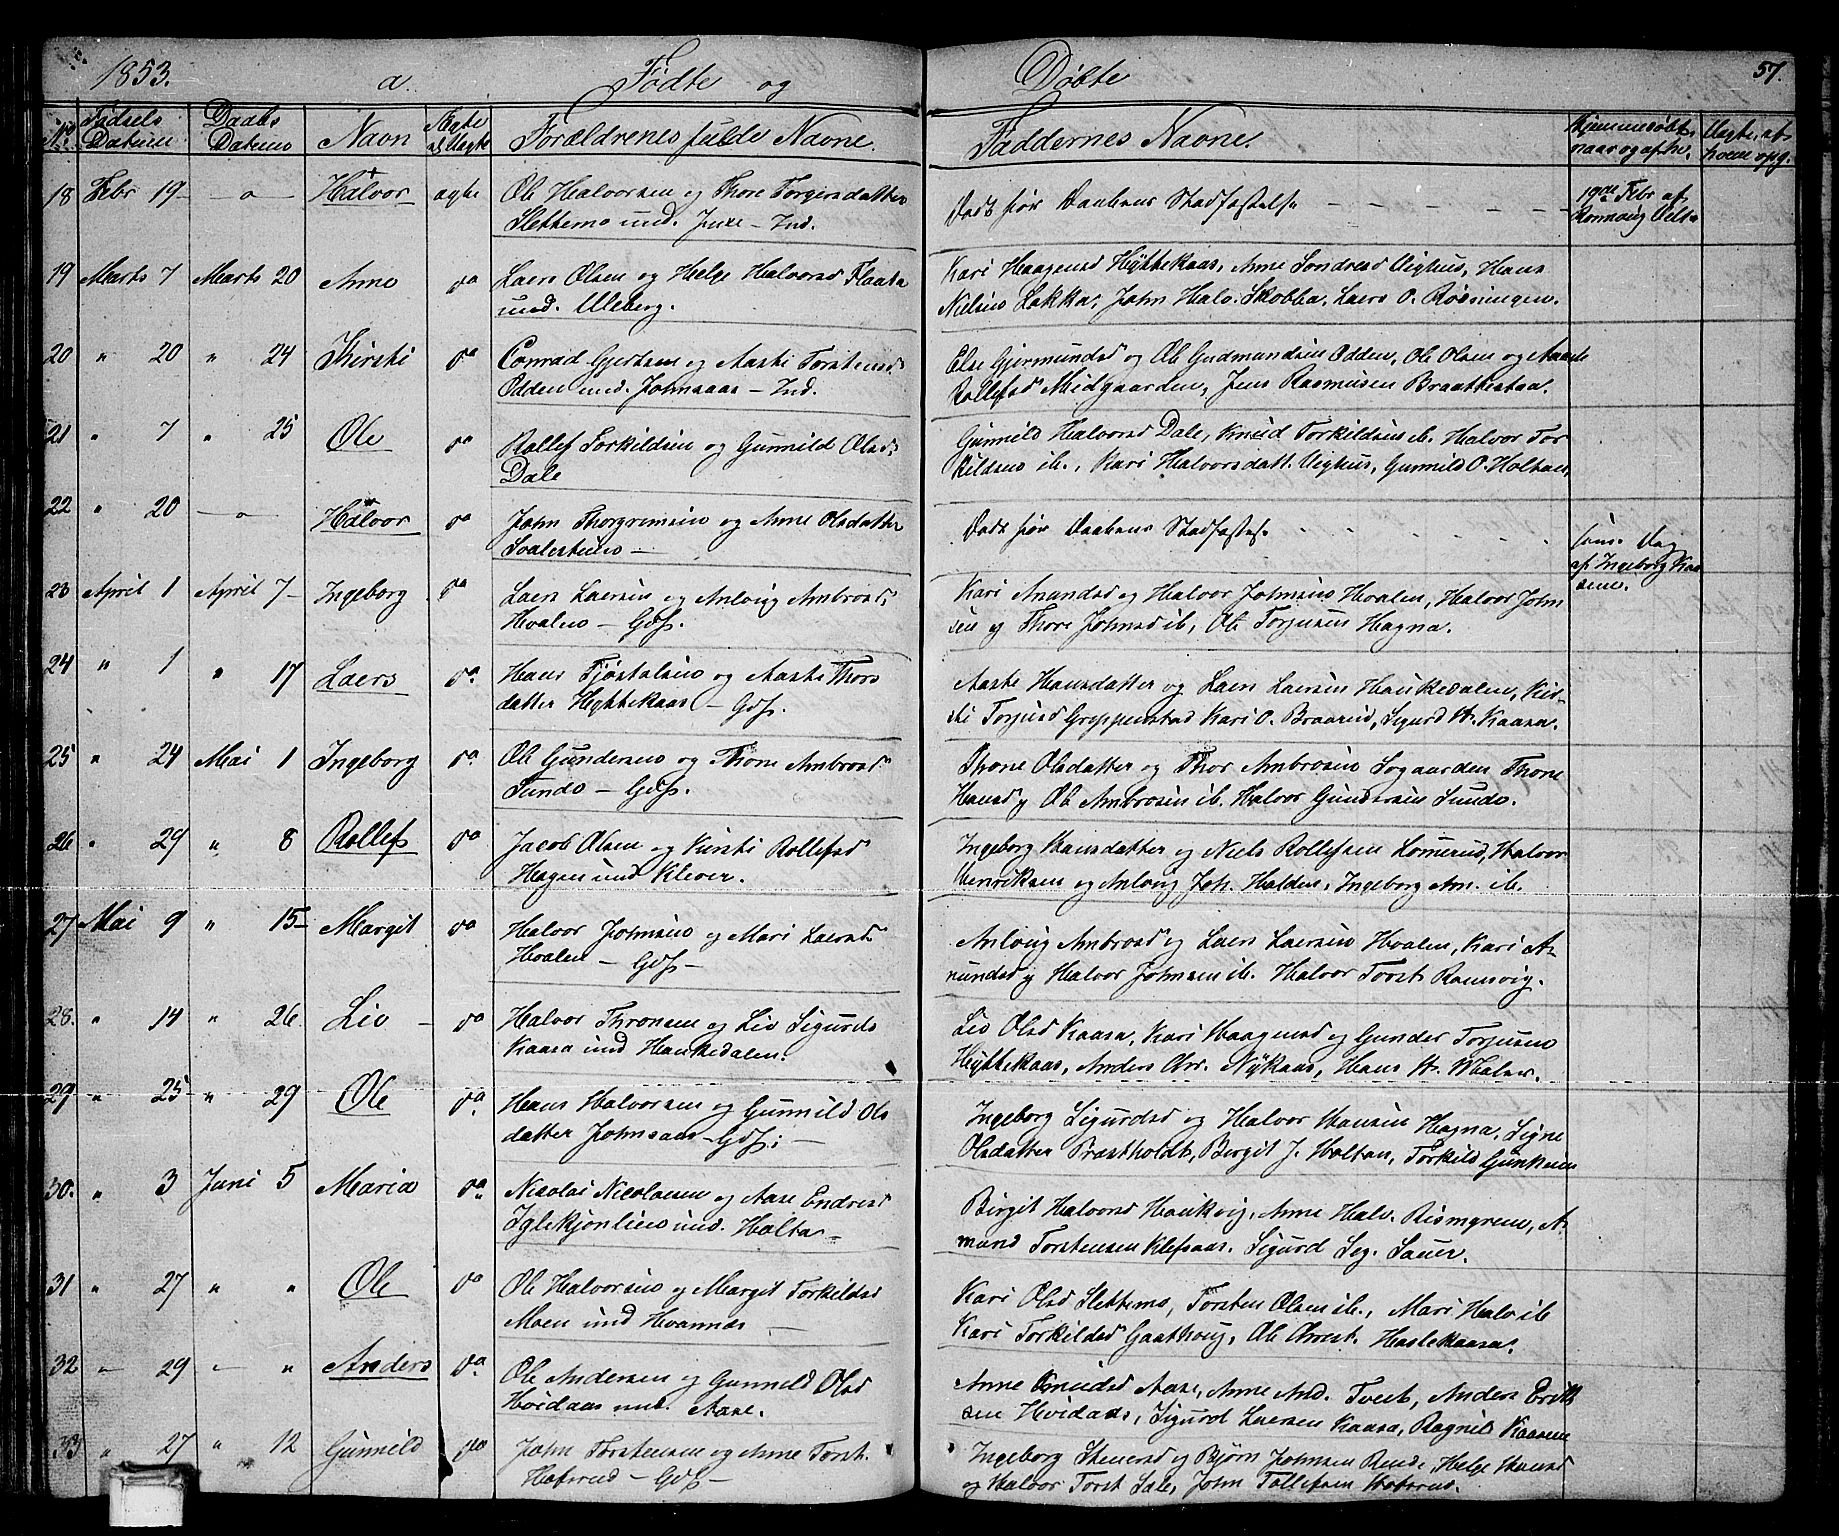 1853. a. Födte og Döbte 57.
No Fødsels Datum Daabs Datum Navn Ægte el. Uægte Forældrenes fulde Navne. Faddernes Navne. Hjemmedöbt, naar og af hv. Uægte, af hvem opg.
18 Febr 19 — o — Halvor ægte Ole Halvorsen og Thore Torgersdatter
Slettemo und. Juxe — Ind.
Död før Daabens Stadfæstelse
19de Febr af
Rannveig Oels
19 Marts 7 Marts 20 Anne do Laers Olsen og Helge Halvorsd Flaata
und. Ulsberg.
Kari Haagensd Hyttekaas, Anne Sondresd Vighus, Hans
Nielsens Lakka, John Halv. Skobba, Laers O. Røisningen.
20 " 20 " 24 Kirsti do Conrad Gjertsen og Aaste Torstensd
Odden und. Johnsaas — Ind.
Else Gjermundsd og Ole Gudmundsen Odden, Ole Olsen og Aaste
Rollefsd Midgaarden, Jens Rasmusen Braathestaa.
21 " 7 " 25 Ole do Rollef Torkildsen og Gunnild Olsd
Dale
Gunnild Halvorsd Dale, Knud Torkildsen ib. Halvor Tor
kildsens ib., Kari Halvorsdatt. Vighus, Gunnild O. Holtan,
22 " 20 — o — Halvor do John Thorgrimsen og Anne Olsdatter
Svalestuens —
Död før Daabens Stadfæst.
sam. Dag
af Ingeborg Kaa
sene.
23 April 1 April 7 Ingeborg do Laers Laersen og Anlaug Ambrosd
Hvalen — Gdf.
Kari Amundsd og Halvor Johnsens Hvalen, Halvor John
sen og Thore Johnsd ib, Ole Torjusen Hagna.
24 " 1 " 17 Laers do Hans Tjöstolsen og Aaste Thors
datter Hyttekaas — Gdf.
Aaste Hansdatter og Laers Laersen Haukedalen, Kir-
sti Torjusd Groppenstad Kari O. Braarud, Sigurd H. Kaasa.
25 " 24 Mai 1 Ingeborg do Ole Gundersens og Thone Ambrosd
Sundo — Gdf.
Thone Olsdatter og Thor Ambrosen Sogaarden, Thone
Hansd og Ole Ambrosen ib. Halvor Gundersen Sundo.
26 " 29 " 8 Rollef do Jacob Olsen og Kirsti Rollefsd
Hagen und Klever.
Ingeborg Hansdatter og Niels Rollefsen Lonnerud, Halvor
Henriksen og Anlaug Joh. Halden, Ingeborg Am. ib.
27 Mai 9 " 15 Margit do Halvor Johnsens og Mari Laersd
Hvalen — Gdf —
Anlaug Ambrosd og Laers Laersen Hvalen, Kari A-
mundsd og Halvor Johnsen ib. Halvor Torst. Ramsvig.
28. " 14 " 26. Liv do Halvor Thronsen og Liv Sigurds
Kaasa und Haukedalen.
Liv Olsd Kaasa, Kari Haagensd og Gunder Torjusen
Hyttekaas, Anders Chr. Nykaas, Hans H. Hvalen.
29 " 25 " 29 Ole do Hans Halvorsen og Gunnild Ols
datter Johnsaas — Gdf; —
Ingeborg Sigurdsd og Halvor Hansen Hagna, Signe
Olsdatter Præstholdt, Birgit J. Holtan, Torkild Gunksen
30. " 3 Juni 5 Maria do Nicolai Nicolaesen og Aase Endresd
Iglekjonliens und. Holta —
Birgit Halvorsd Haukvig, Anne Halv. Rismyren, A-
mund Torstensen Klefsaas. Sigurd Sig. Sauer.
31 " 27 " " Ole do Ole Halvorsens og Margit Torkildsd
Moen und Hvannæs —
Kari Olsd Slettemo, Torsten Olsen ib., Mari Halv ib
Kari Torkildsd Gaathoug, Ole Chrest. Haslekaasa.
32 — 29 — " Anders do Ole Andersen og Gunnild Olsd
Hvidaas und. Aase.
Anne Knudsd Aase, Anne And. Tveit, Anders Erik
sen Hvidaas, Sigurd Laersen Kaasa, Ragnild Kaasene
33 " 27 " 12 Gunnild do John Torstensen og Anne Torst.
Hafsrud — Gdf —
Ingeborg Stenersd og Björn Johnsen Rende, Helge Hansd
og Halvor Torst Dale, John Tollefsen Haterud.